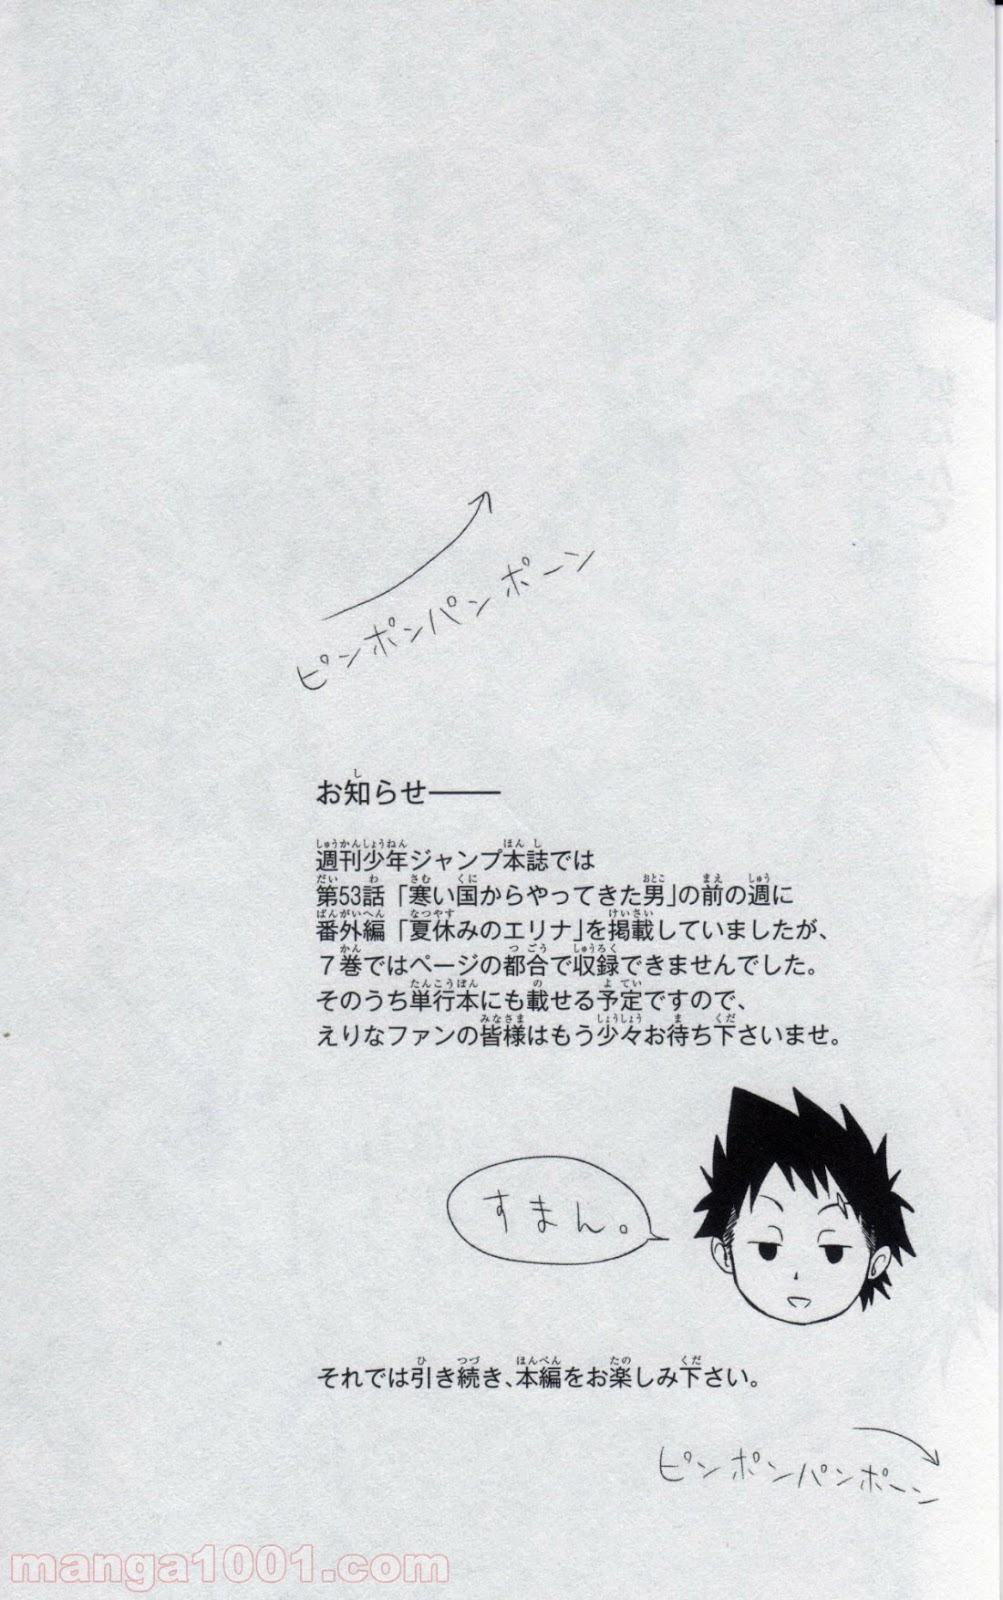 ピンポンパンポーン
お知らせ――
週刊少年ジャンプ本誌では
第53話「寒い国からやってきた男」の前の週に
番外編「夏休みのエリナ」を掲載していましたが、
7巻ではページの都合で収録できませんでした。
そのうち単行本にも載せる予定ですので、
えりなファンの皆様はもう少々お待ち下さいませ。
すまん。
それでは引き続き、本編をお楽しみ下さい。
ピンポンパンポーン
manga1001.com